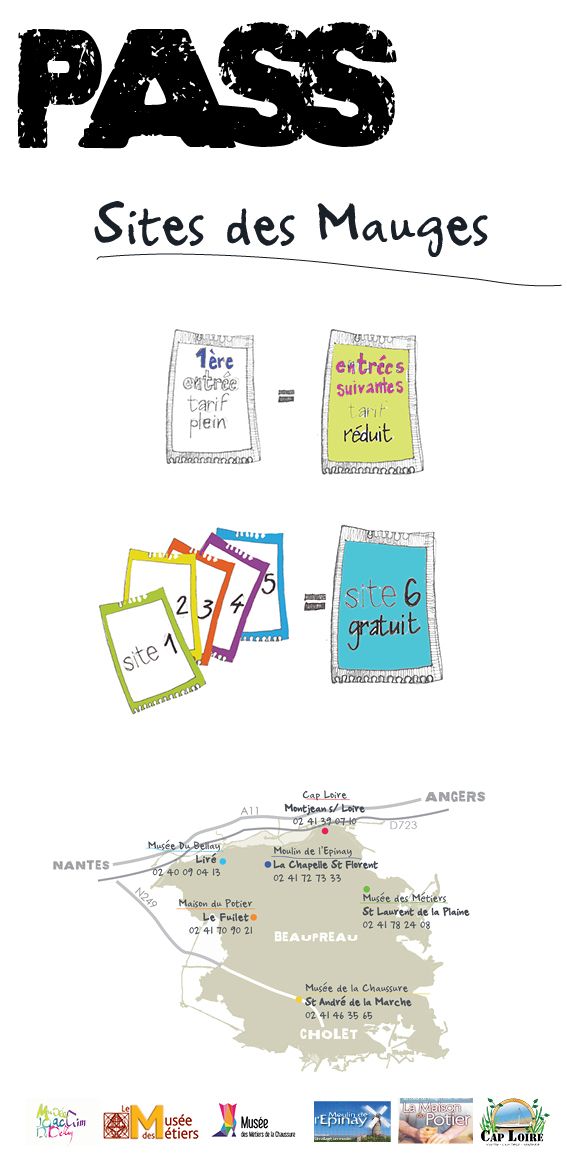 PASS
Sites des Mauges
1ère
entrée
tarif
plein
=
entrées
suivantes
tarif
réduit
site 1
2
3
4
5
=
site 6
gratuit
Cap Loire
Montjean s/ Loire
02 41 39 07 10
ANGERS
A11
D723
Musée Du Bellay
Liré
02 40 09 04 13
Moulin de l'Epinay
La Chapelle St Florent
02 41 72 73 33
NANTES
N249
Maison du Potier
Le Fuilet
02 41 70 90 21
Musée des Métiers
St Laurent de la Plaine
02 41 78 24 08
BEAUPREAU
Musée de la Chaussure
St André de la Marche
02 41 46 35 65
CHOLET
Le Musée
des Métiers
Musée
des Métiers de la Chaussure
Moulin de
l'Epinay
La Maison
du Potier
CAP LOIRE